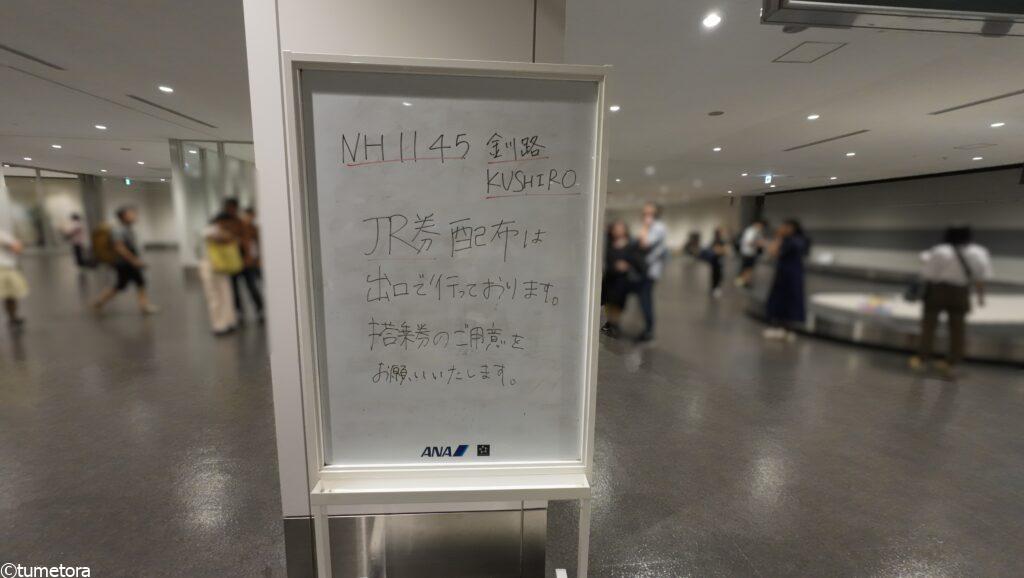 NH1145 釧路
KUSHIRO
JR券 配布は
出口で行っております。
搭乗券のご用意を
お願いいたします。
ANA
©tumetora